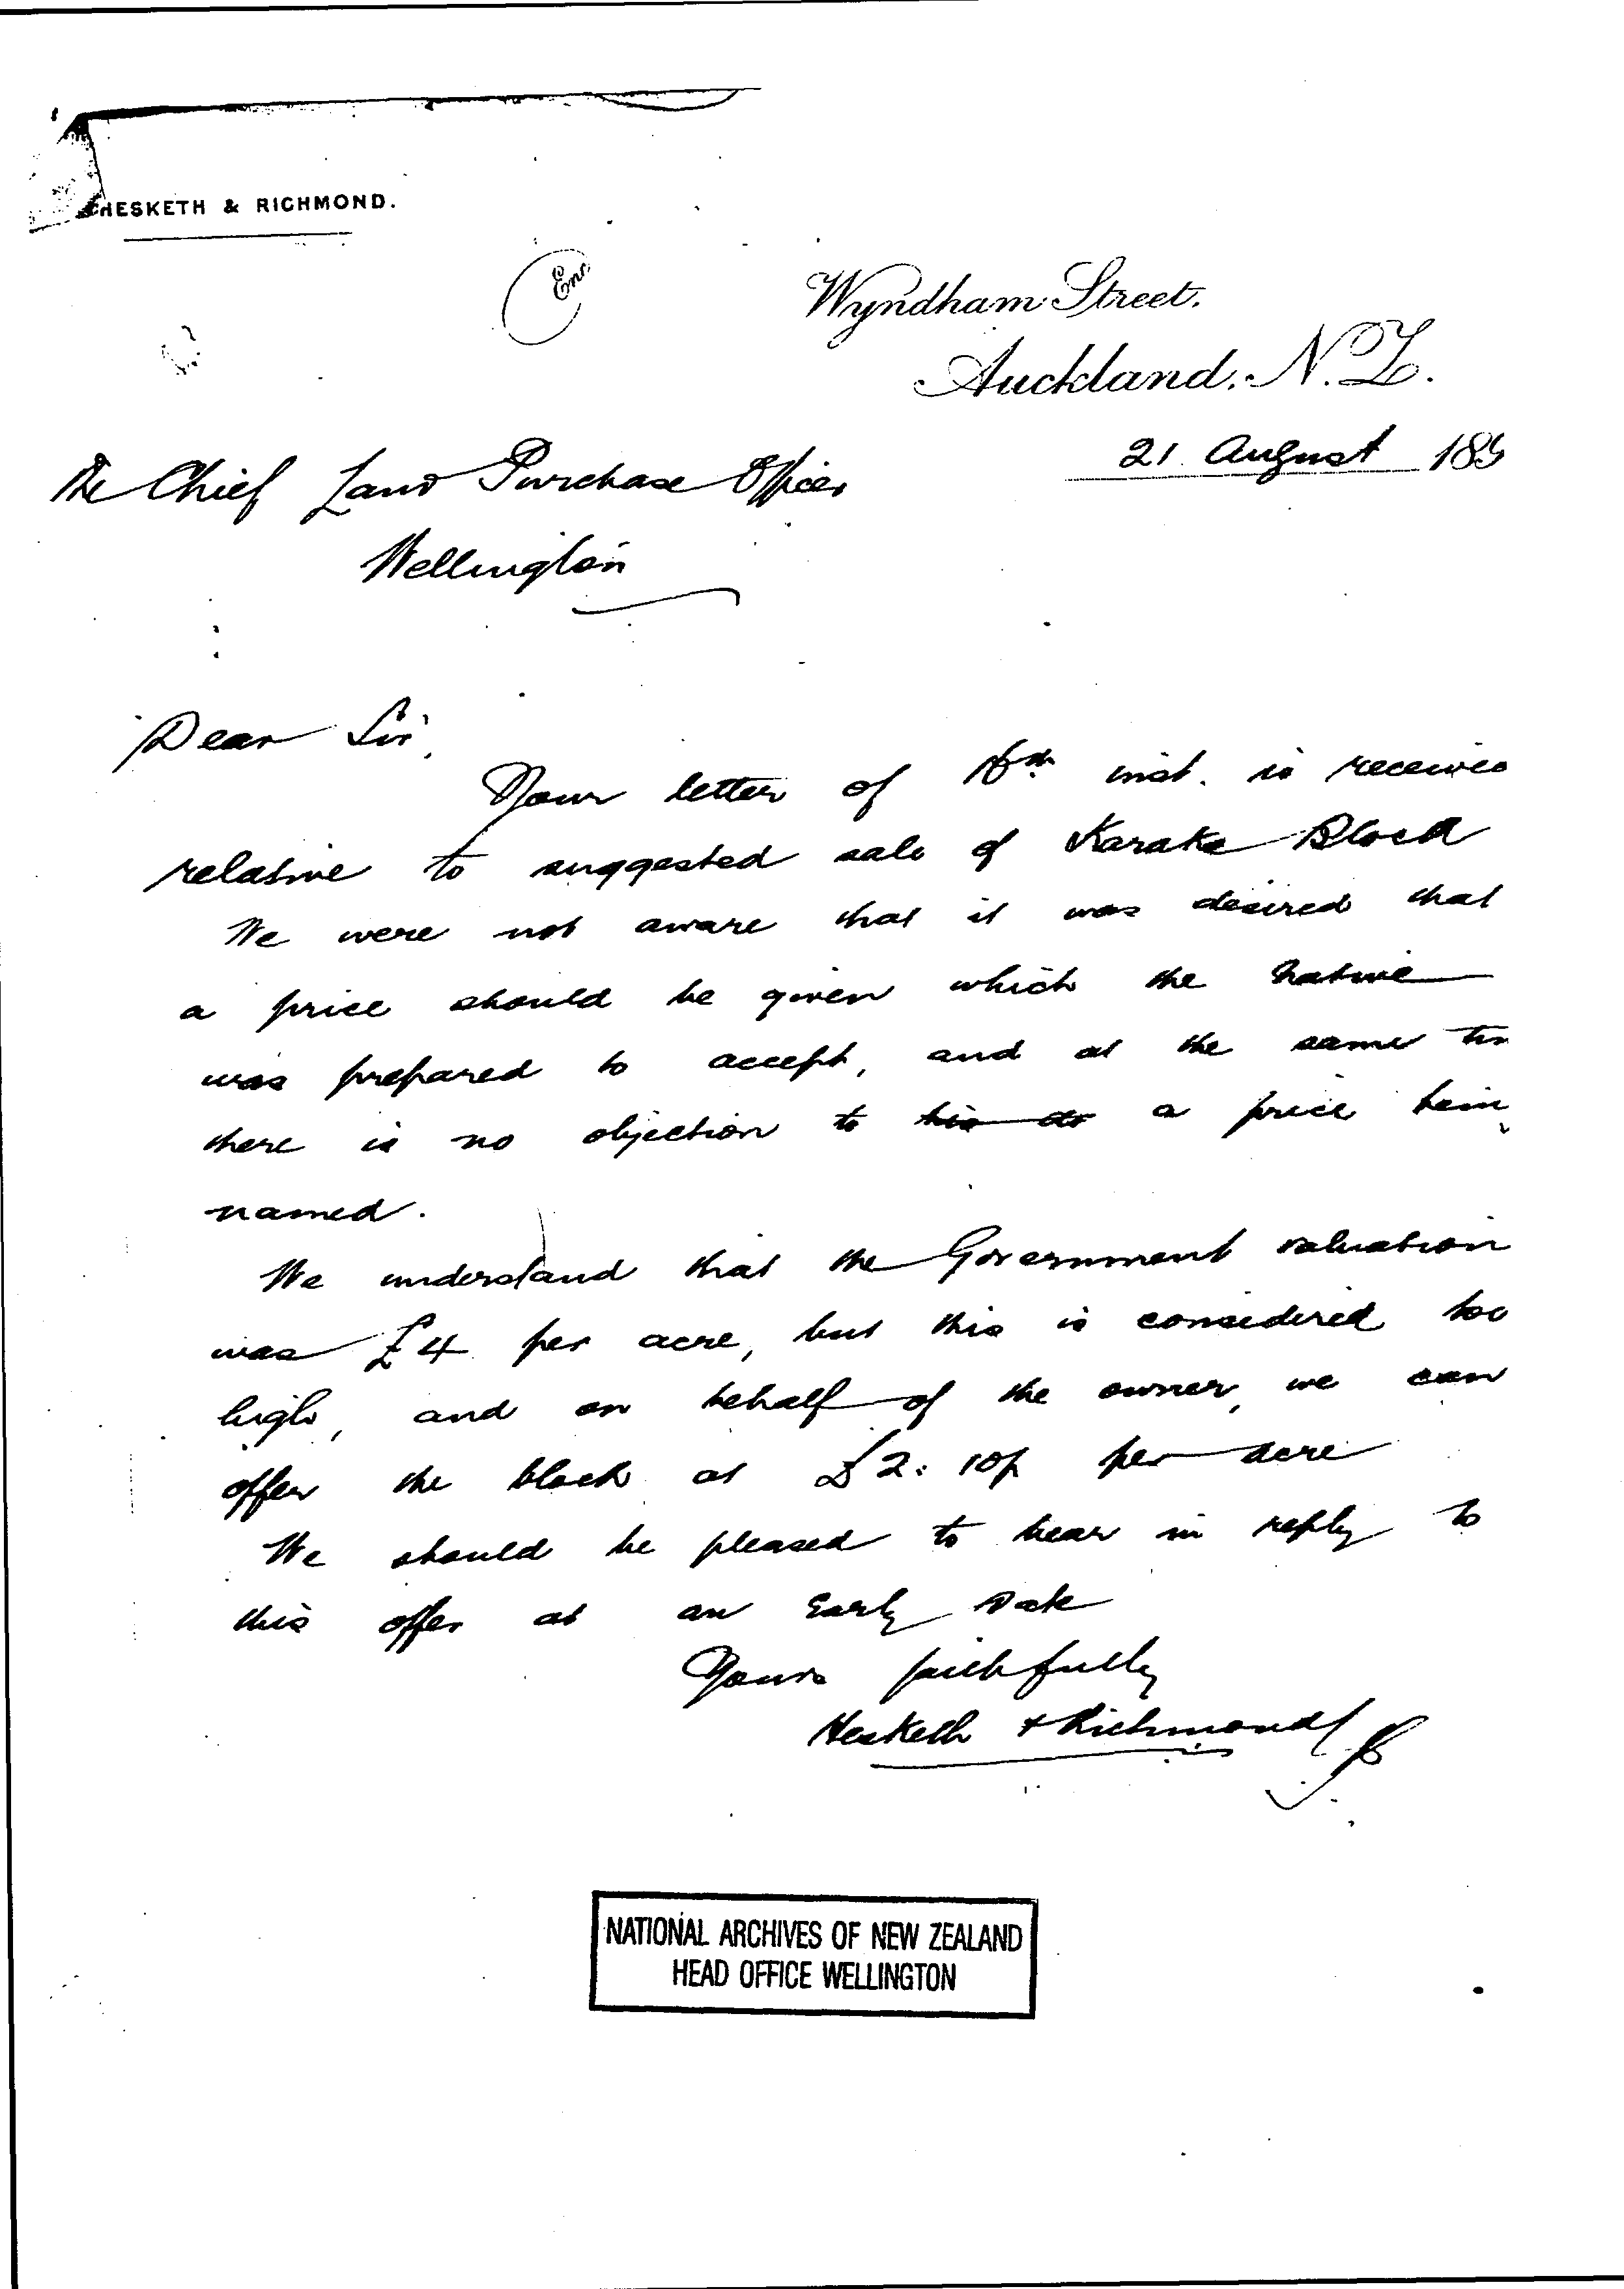 HESKETH & RICHMOND.
Wyndham Street.
Auckland. N.Z.
21 August 189
The Chief Land Purchase Officer
Wellington
Dear Sir,
Your letter of 16th inst. is received
relative to suggested sale of Karaka Block
We were not aware that it was desired that
a price should be given which the Native
was prepared to accept, and at the same tim
there is no objection to a price bein
named.
We understand that the Government valuation
was £4 per acre, but this is considered too
high, and on behalf of the owner, we can
offer the block at £2: 10/ per acre
We should be pleased to hear in reply to
this offer at an Early Date
Yours faithfully
Hesketh & Richmond
NATIONAL ARCHIVES OF NEW ZEALAND
HEAD OFFICE WELLINGTON